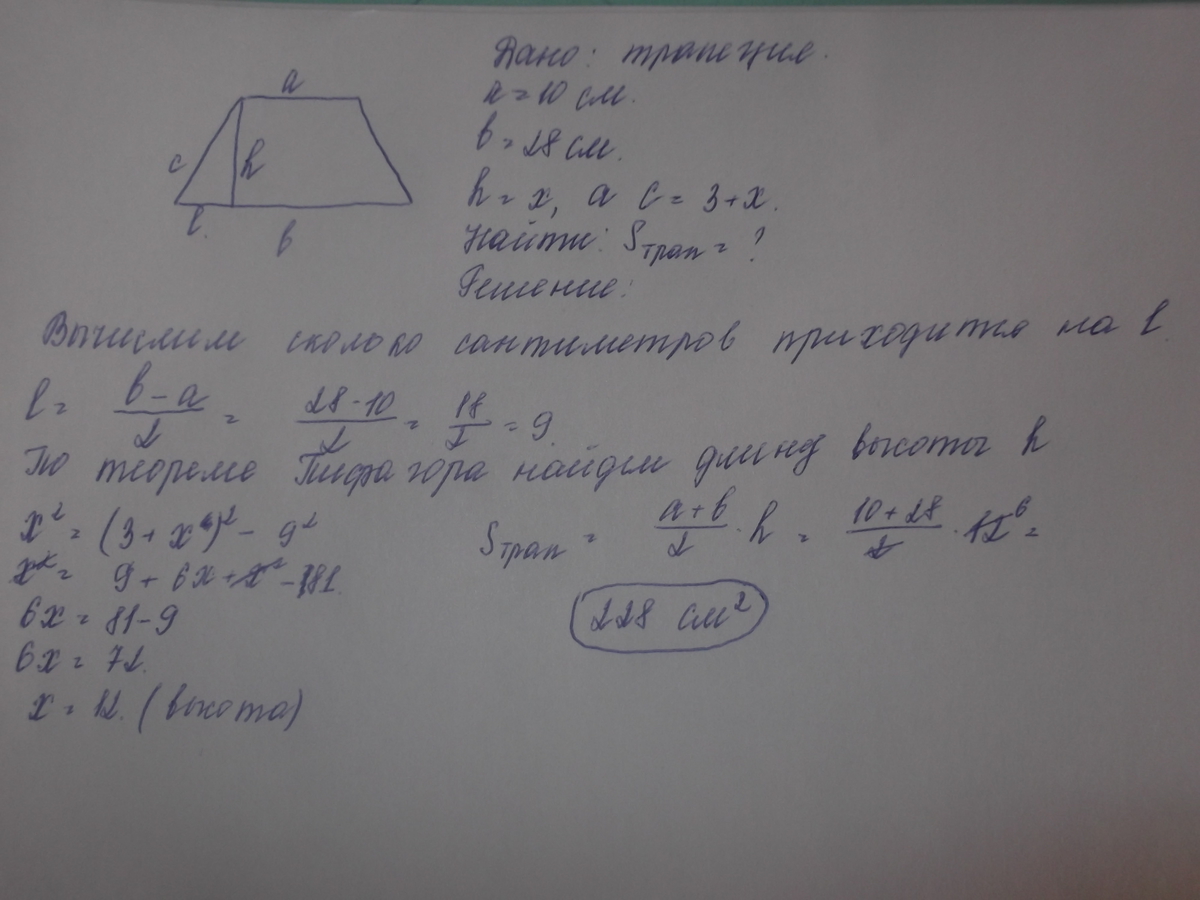 Дано: трапеция.
a = 10 см.
в = 28 см.
h = x, а c = 3+x.
Найти: Sтрап = ?
Решение:
a
c
h
l.
в
Вычислим сколько сантиметров приходится на l.
l = (в-a)/2 = (28-10)/2 = 18/2 = 9.
По теореме Пифагора найдем длину высоты h
x² = (3+x)² - 9²
x² = 9 + 6x + x² - 81.
6x = 81-9
6x = 72.
x = 12. (высота)
Sтрап = (a+в)/2 · h = (10+28)/2 · 12⁶ =
228 см²